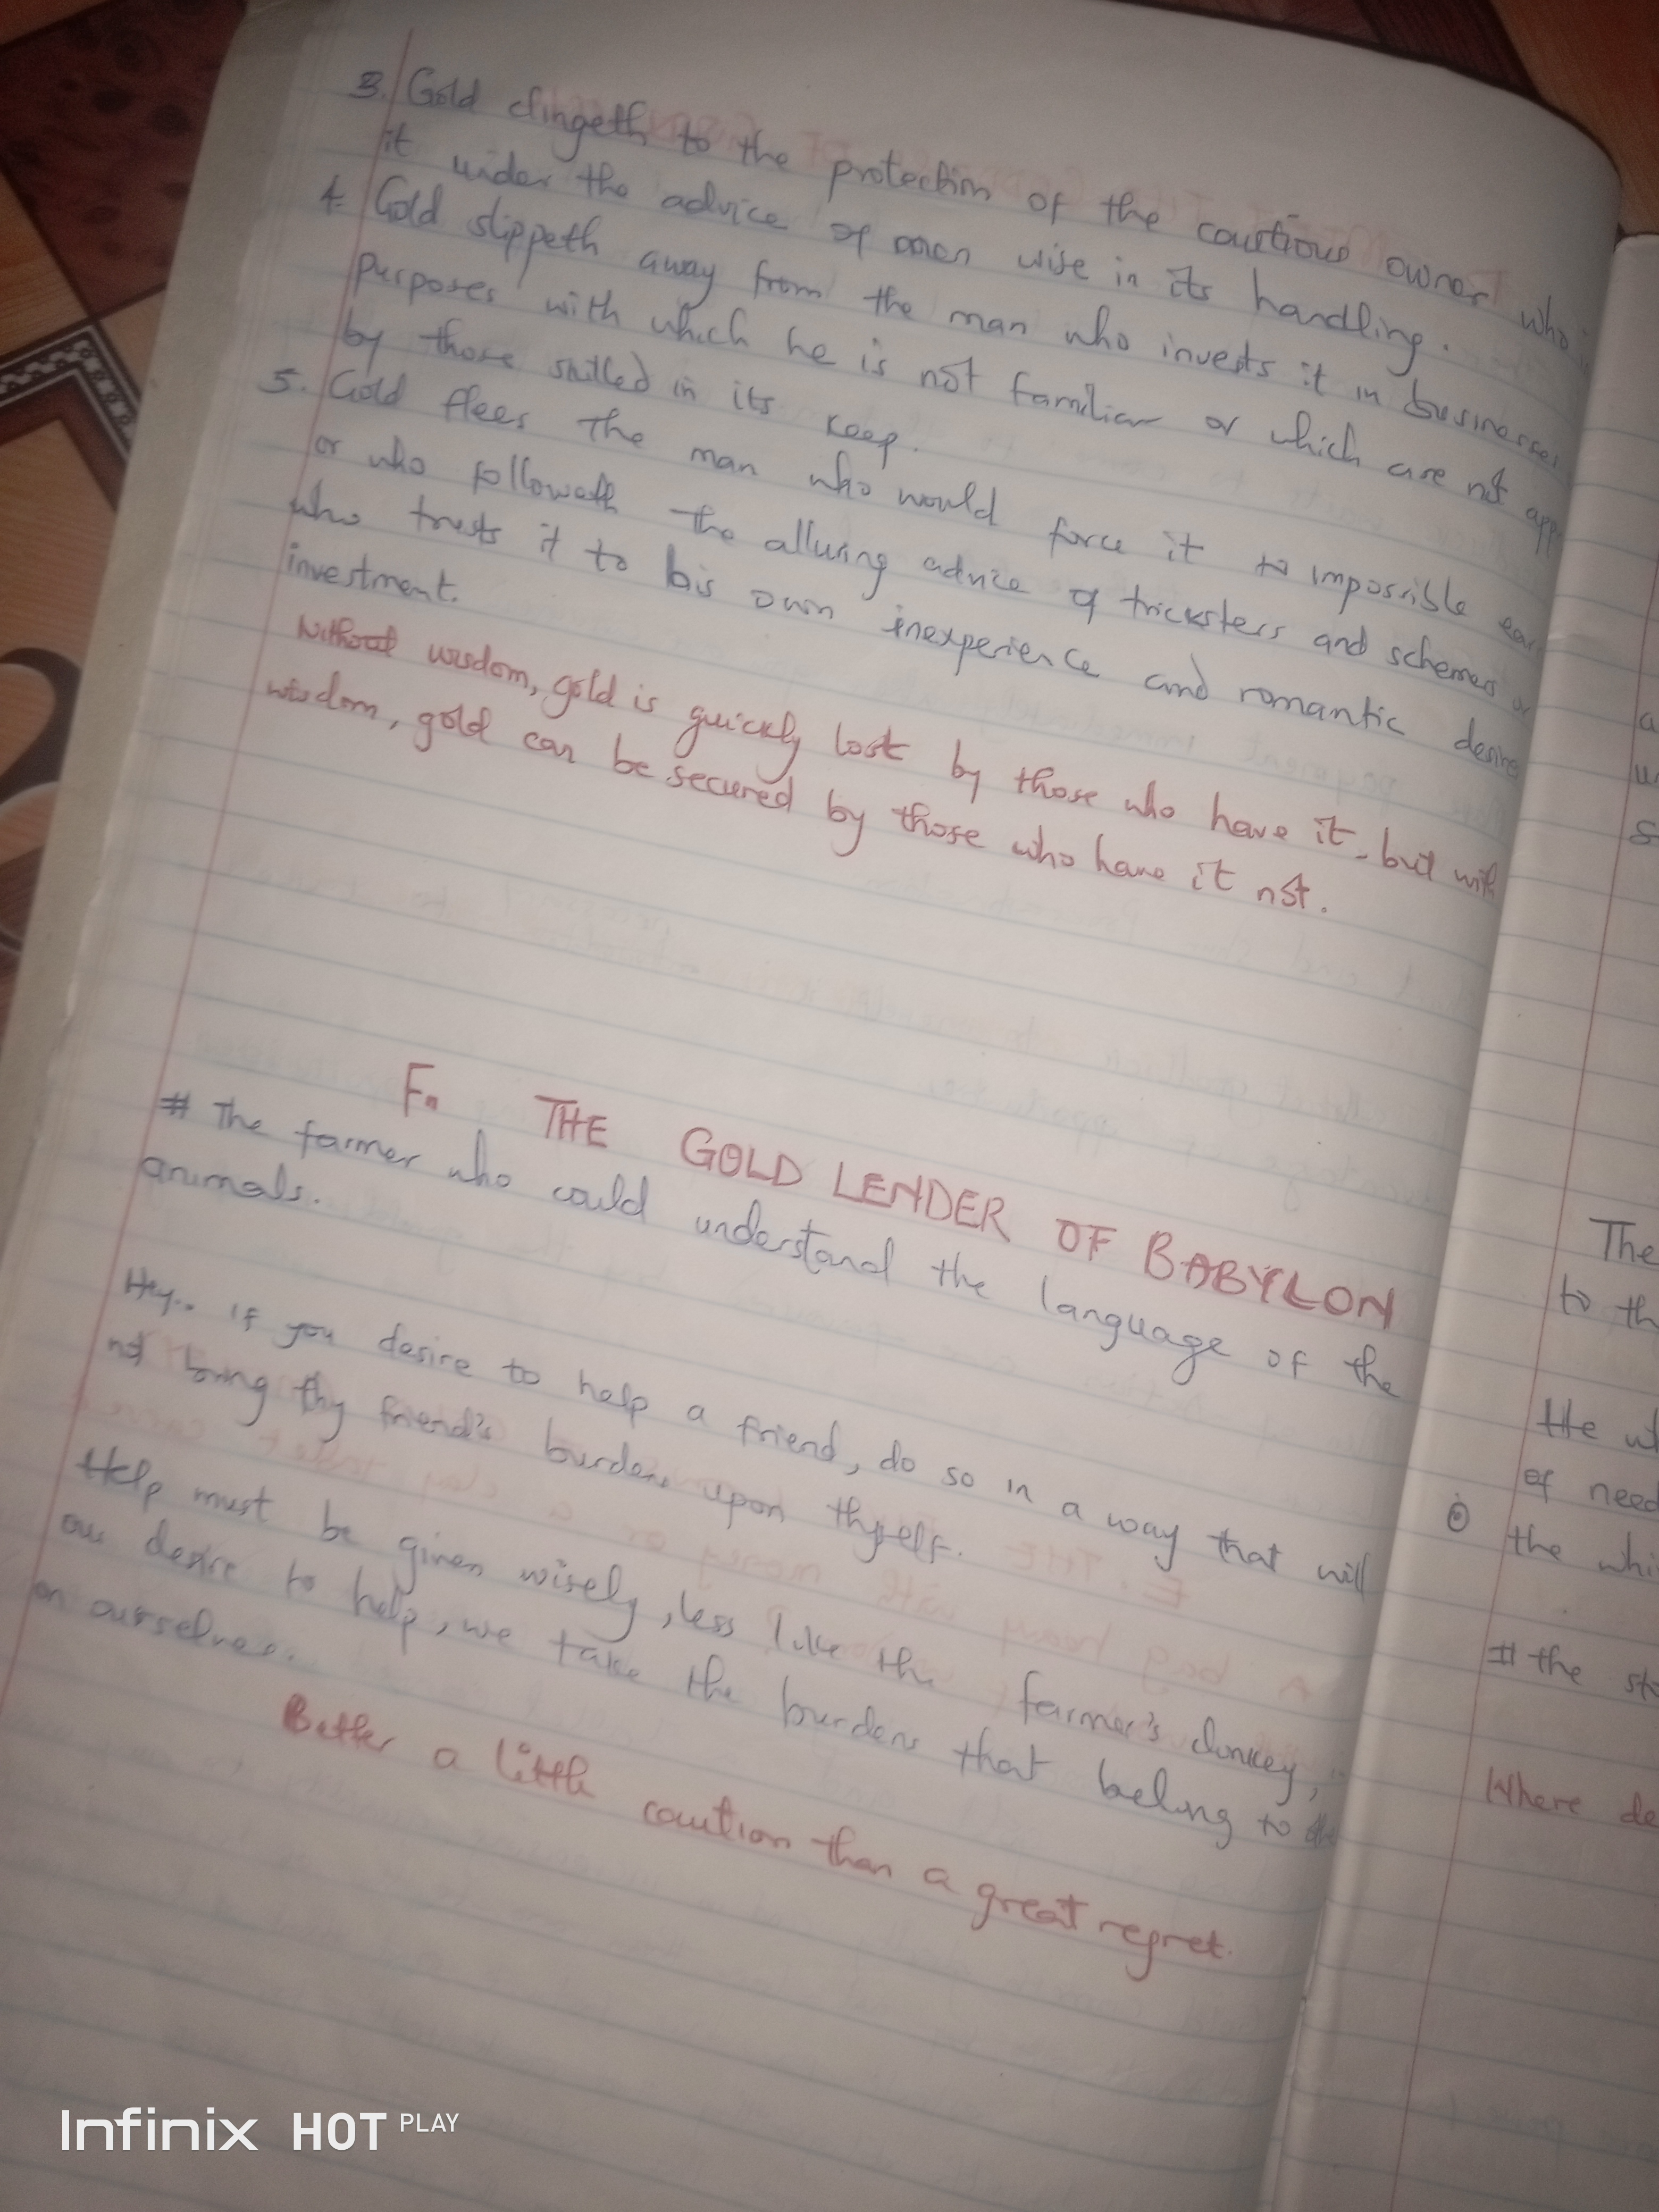 3. Gold clingeth to the protection of the cautious owner who
it under the advice of men wise in its handling.
4. Gold slippeth away from the man who invests it in businesses
purposes with which he is not familiar or which are not app
by those skilled in its keep.
5. Gold flees the man who would force it to impossible ear
or who followeth the alluring advice of tricksters and schemers or
who trusts it to his own inexperience and romantic desires
investment.
Without wisdom, gold is quickly lost by those who have it - but with
wisdom, gold can be secured by those who have it not.
F. THE GOLD LENDER OF BABYLON
# The farmer who could understand the language of the
animals.
Hey.. If you desire to help a friend, do so in a way that will
not bring thy friend's burdens upon thyself.
Help must be given wisely, less like the farmer's donkey,
our desire to help, we take the burdens that belong to
on ourselves.
Better a little caution than a great regret.
The
to th
He wh
of need
the whi
# the sto
Where de
Infinix HOT PLAY